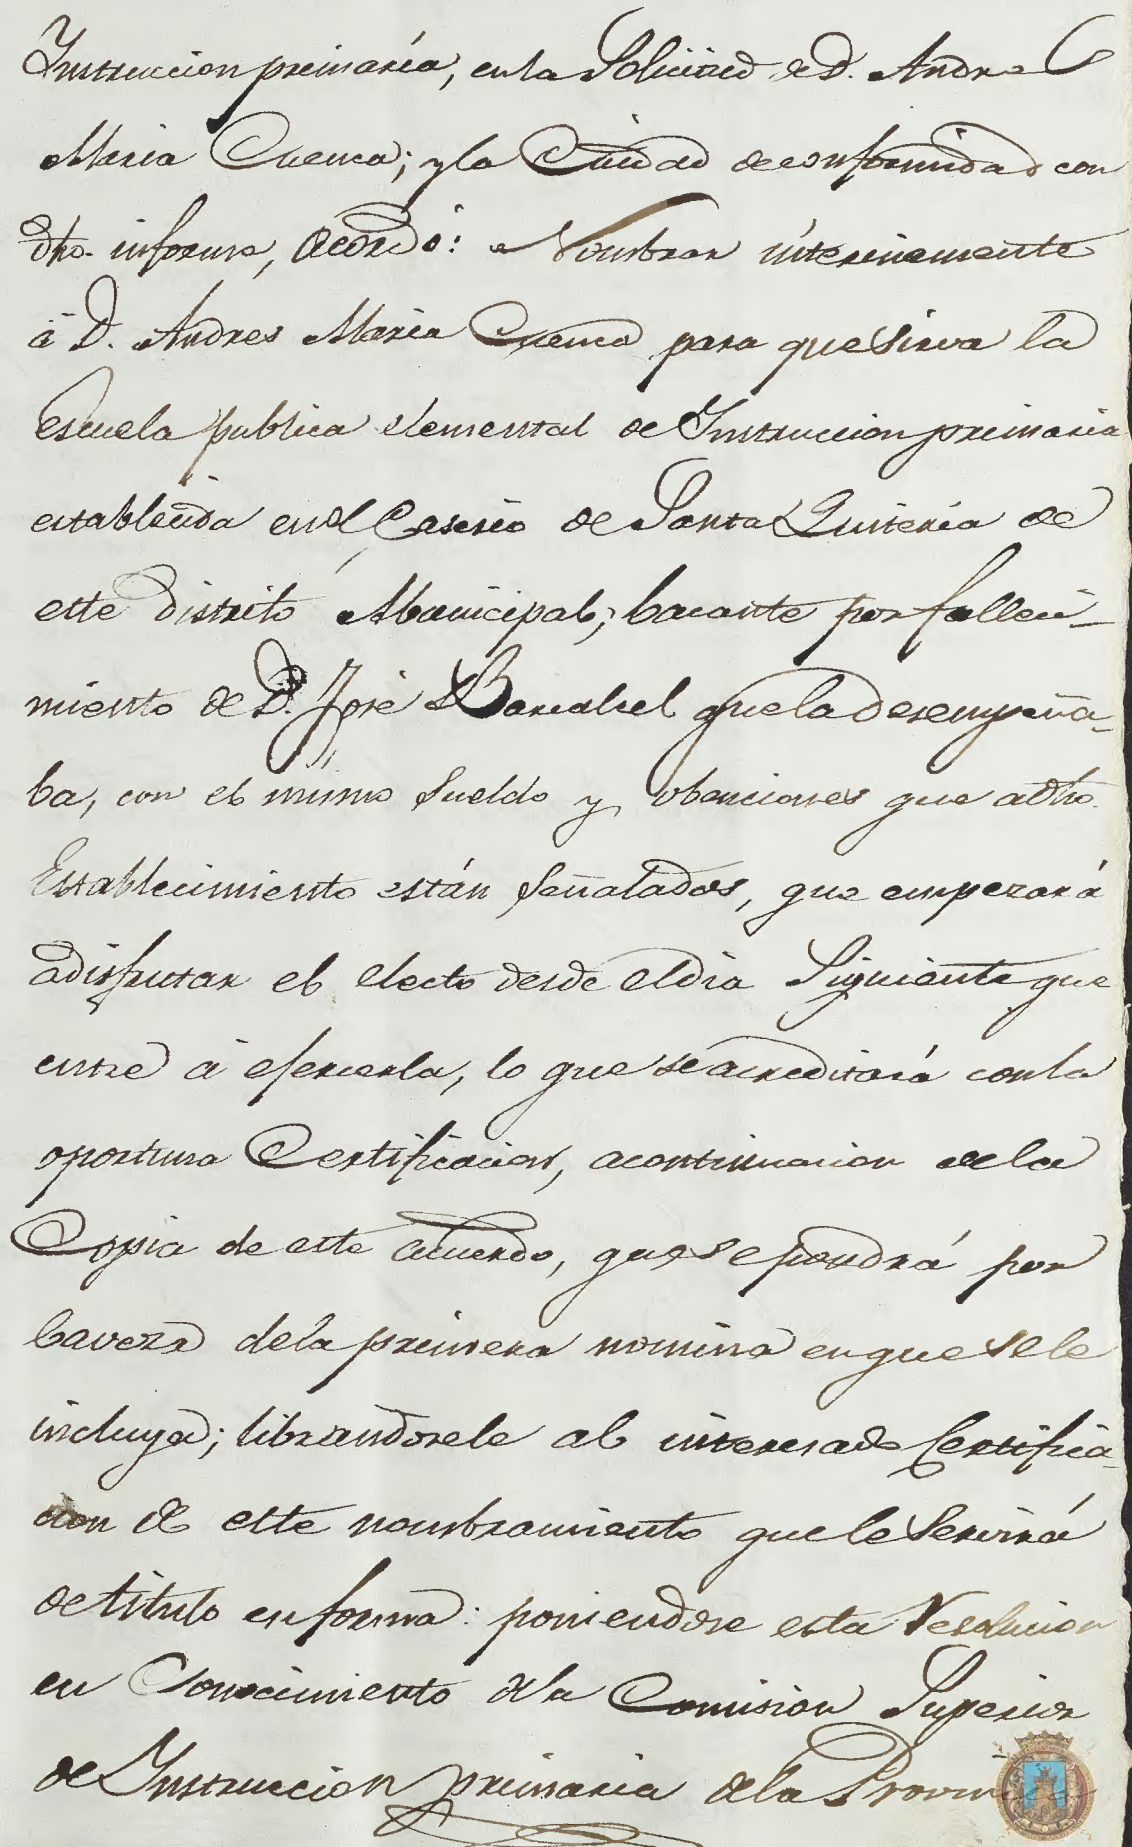 Instruccion primaria, en la Solicitud de D. Andres
Maria Cuenca; y la Ciudad de conformidad con
dho. informe, acordó: Nombrar interinamente
á D. Andres Maria Cuenca para que sirva la
escuela publica elemental de Instruccion primaria
establecida en el Caserio de Santa Quiteria de
este distrito Municipal, bacante por falleci-
miento de D. José que la desempeña-
ba, con el mismo sueldo y obenciones que a dho.
Establecimiento están señalados, que empezará
a disfrutar el electo desde el dia Siguiente que
entre á ejercerla, lo que se acreditará con la
oportuna Certificacion, a continuacion de la
Copia de este acuerdo, que se pondrá por
Caveza de la primera nomina en que se le
incluya; librandosele al interesado Certifica-
cion de este nombramiento que le Servirá
de titulo en forma: poniendose esta Resolucion
en Conocimiento de la Comision Superior
de Instruccion primaria de la Provin